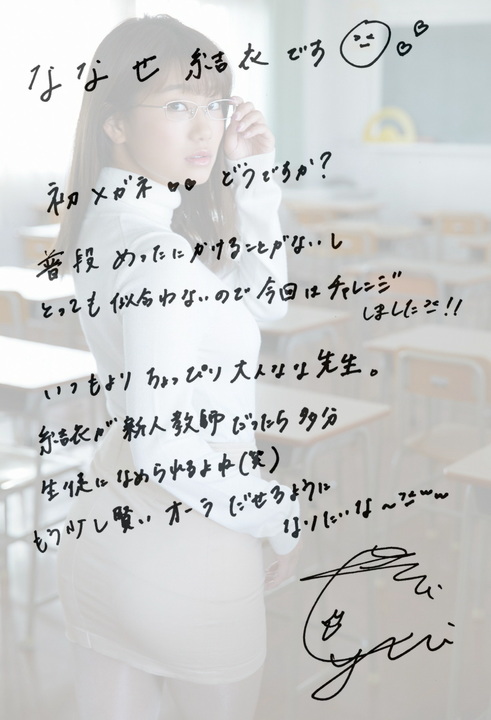 ななせ 結衣です
初メガネ♥♥ どうですか?
普段めったにかけることがないし
とっても似合わないので今回はチャレンジ
しました!!
いつもより ちょっぴり大人な先生。
結衣が新人教師だったら多分
生徒になめられるよね(笑)
もう少し賢いオーラ だせるように
なりたいな~
yui